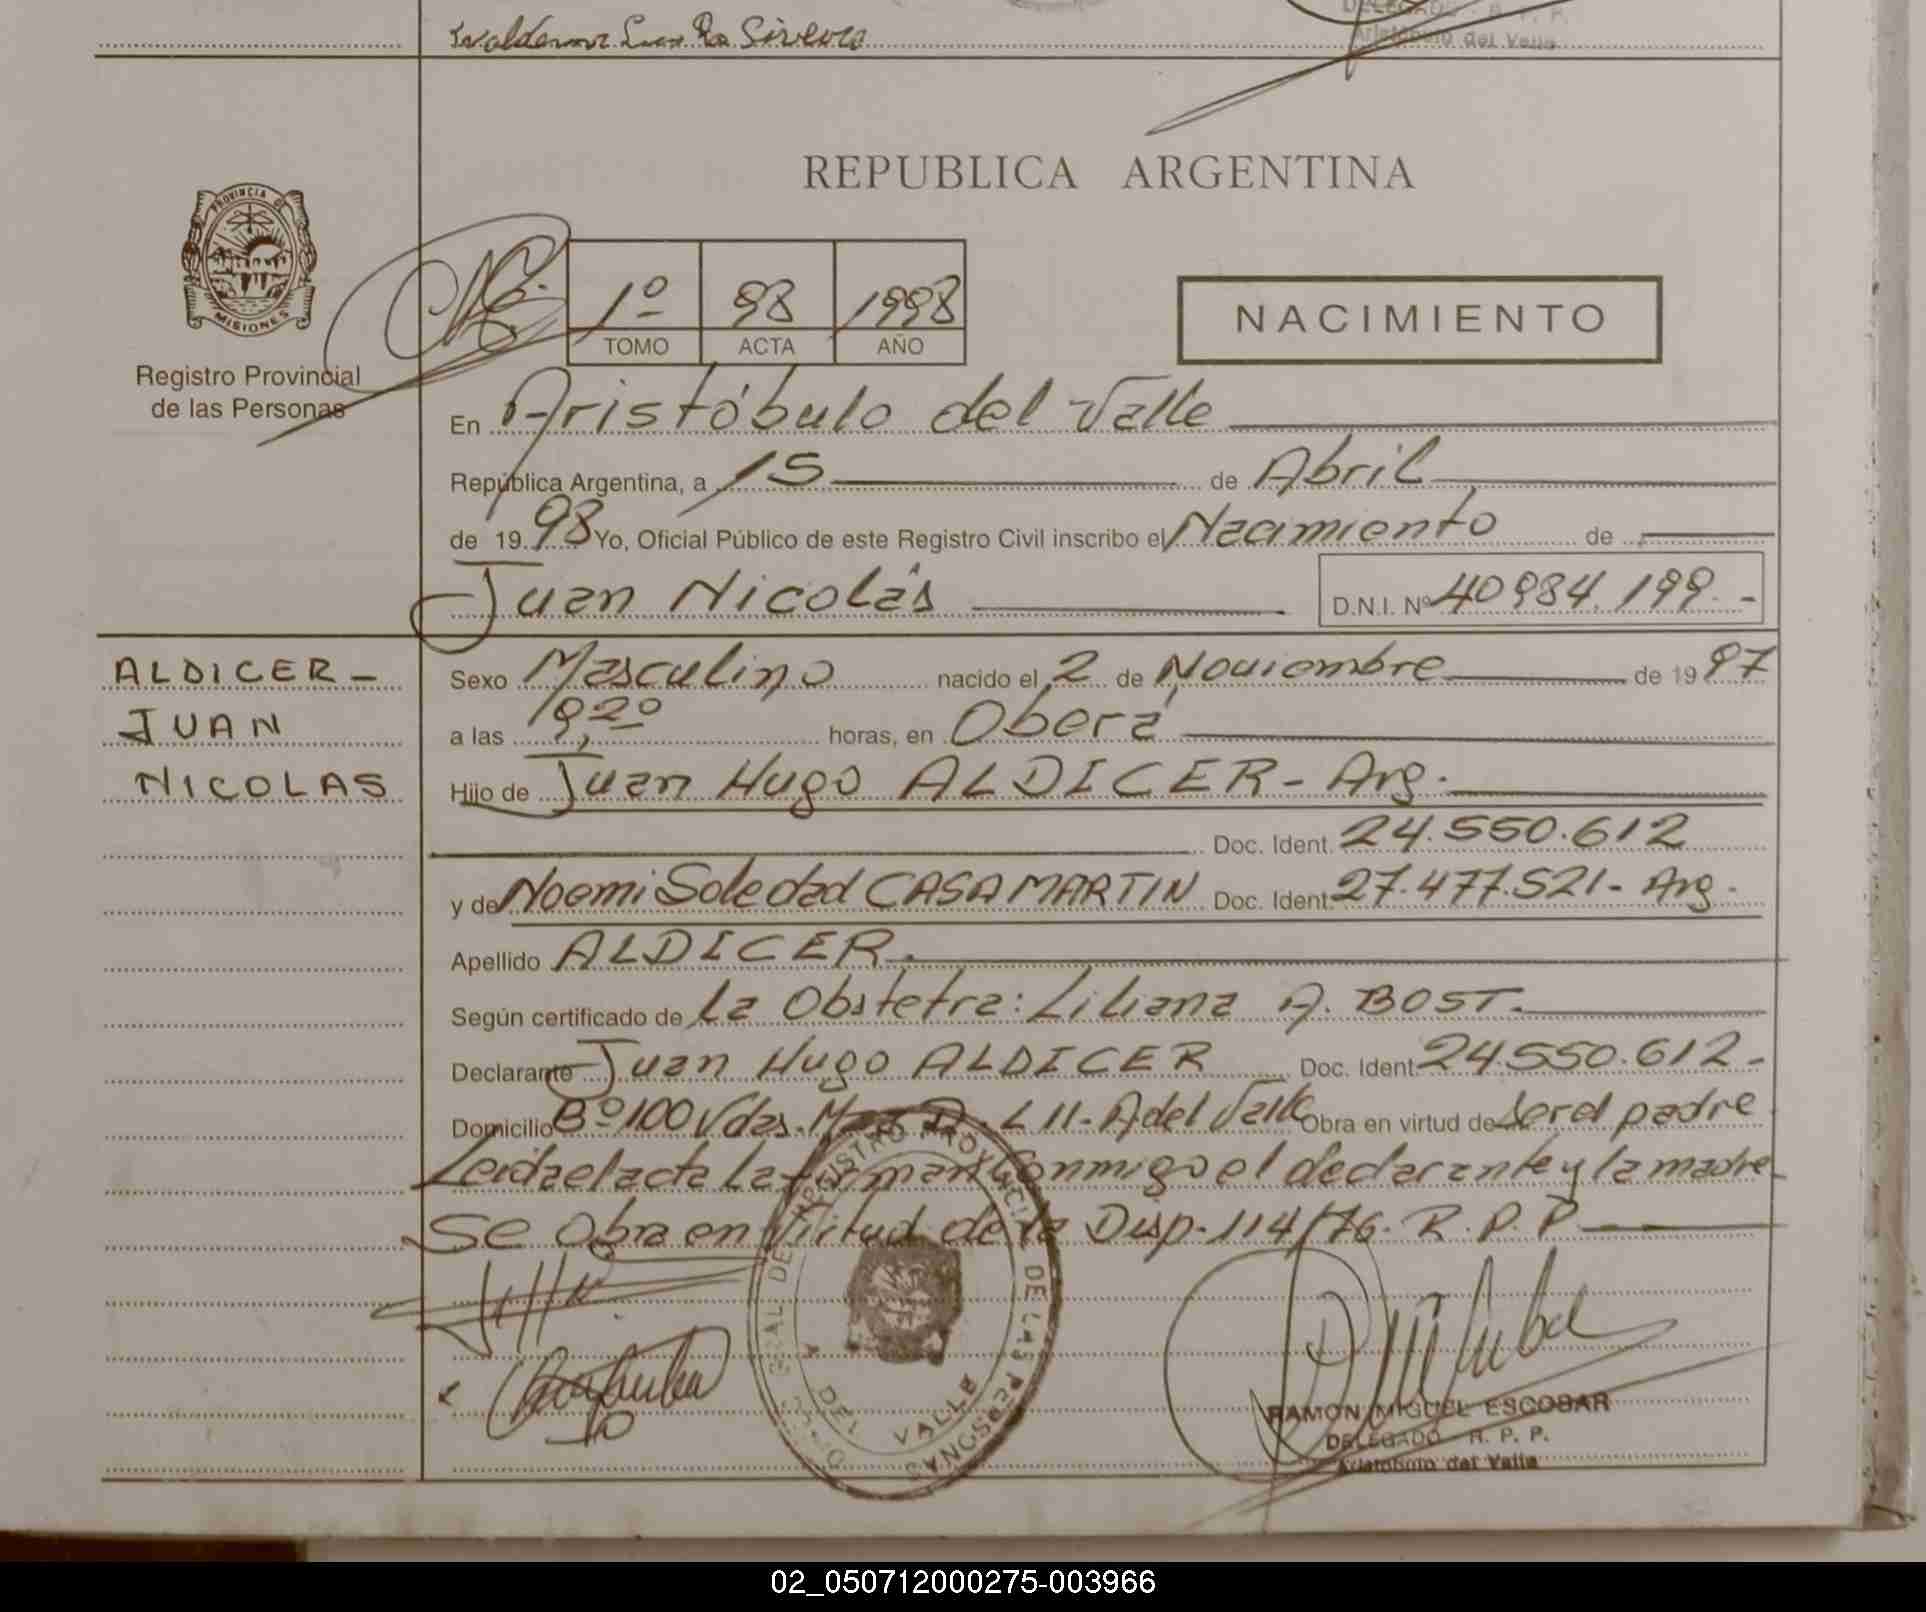 DELEGADO - R. P. P.
Aristóbulo del Valle
REPUBLICA ARGENTINA
PROVINCIA DE
MISIONES
Registro Provincial
de las Personas
1º 98 1998
TOMO ACTA AÑO
NACIMIENTO
En Aristóbulo del Valle
República Argentina, a 15 de Abril
de 19 98 Yo, Oficial Público de este Registro Civil inscribo el Nacimiento de
Juan Nicolás D.N.I. Nº 40984.199.-
ALDICER-
JUAN
NICOLAS
Sexo Masculino nacido el 2 de Noviembre de 19 97
a las horas, en Oberá
Hijo de Juan Hugo ALDICER - Arg.
Doc. Ident. 24.550.612
y de Noemi Soledad CASAMARTIN Doc. Ident. 27.477.521- Arg.
Apellido ALDICER.
Según certificado de La Obstetra: Liliana A. BOST.
Declarante Juan Hugo ALDICER Doc. Ident. 24.550.612-
Domicilio Bº 100 Vdas. L 11- A del Valle Obra en virtud de ser el padre
Leida el acta La firman Conmigo el declarante y la madre
Se Obra en Virtud de la Disp. 114/76. R.P.P
REGISTRO PROVINCIAL DE LAS PERSONAS
DEL VALLE
RAMON MIGUEL ESCOBAR
DELEGADO R. P. P.
Aristóbulo del Valle
02_050712000275-003966